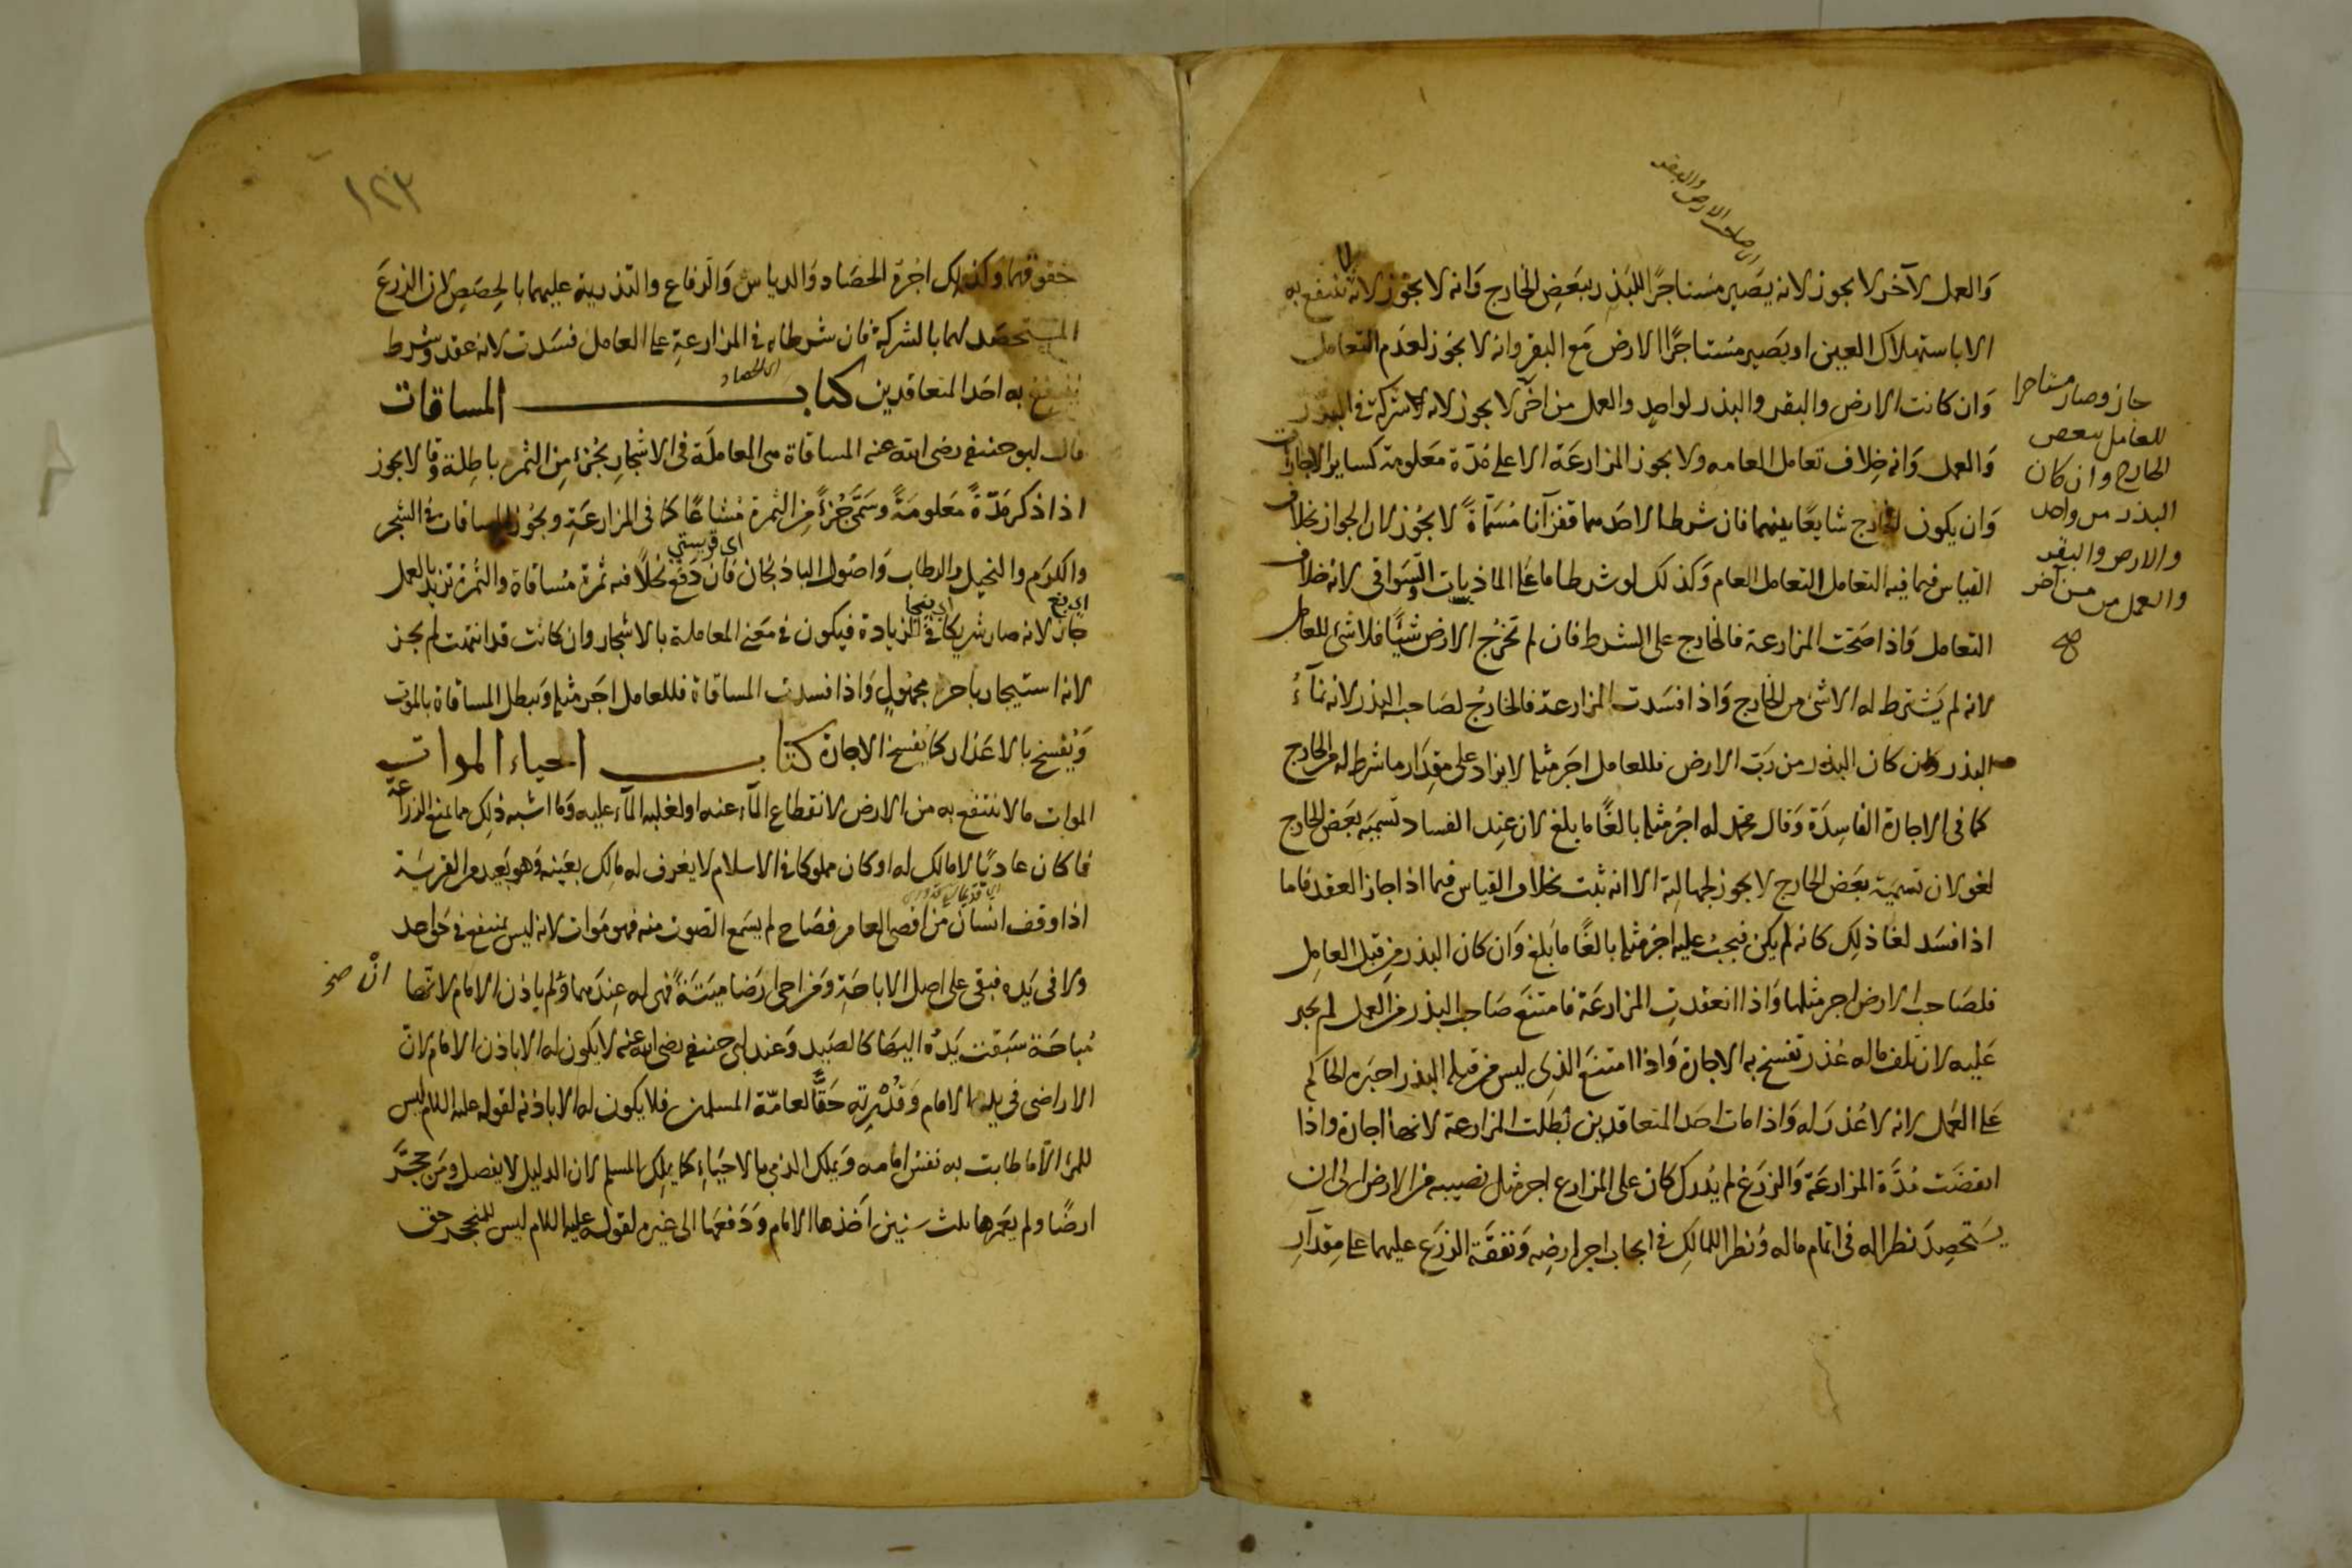 اى صاحب الارض والبقر
والعمل لآخر لا يجوز لانه يصير مستاجرًا للبذر ببعض الخارج وانه لا يجوز لانه لا ينتفع به
الا باستهلاك العين او يصير مستاجرًا الارض مع البقر وانه لا يجوز لعدم التعامل
وان كانت الارض والبقر والبذر لواحد والعمل من اخر لا يجوز لانه لا شركة فى البذر
والعمل وانه خلاف تعامل العامه ولا يجوز المزارعة الا على مدة معلومة كساير الاجارات
وان يكون الخارج شايعًا بينهما فان شرطا لاحدهما قفزانا مسماة لا يجوز لان الجواز بخلاف
القياس فيما فيه التعامل التعامل العام وكذلك لو شرطا ما على الماذيانات والسواقى لانه خلاف
التعامل واذا صحت المزارعة فالخارج على الشرط فان لم تخرج الارض شيًا فلا شئ للعامل
لانه لم يشترط له الا شئ من الخارج واذا فسدت المزارعة فالخارج لصاحب البذر لانه نماء
البذر وان كان البذر من رب الارض فللعامل اجر مثله لا يزاد على مقدار ما شرط له من الخارج
كما فى الاجارة الفاسدة وقال محمد له اجر مثله بالغًا ما بلغ لان عند الفساد تسميه بعض الخارج
لغو لان تسمية بعض الخارج لا يجوز لجهالته الا انه ثبت بخلاف القياس فيما اذا جاز العقد فاما
اذا فسد لغا ذلك كانه لم يكن فيجب عليه اجر مثله بالغًا ما بلغ وان كان البذر من قبل العامل
فلصاحب الارض اجر مثلها واذا انعقدت المزارعة فامتنع صاحب البذر من العمل لم يجبر
عليه لان تلف ماله عذر تفسخ به الاجارة واذا امتنع الذى ليس من قبله البذر اجبره الحاكم
على العمل لانه لا عذر له واذا مات احد المتعاقدين بطلت المزارعة لانها اجارة واذا
انقضت مدة المزارعة والزرع لم يدرك كان على المزارع اجر مثل نصيبه من الارض الى ان
يستحصد نظرا له فى اتمام ماله ونظرا للمالك فى ايجاب اجر ارضه ونفقة الزرع عليهما على مقدار
جاز وصار مستاجرا
للعامل ببعض
الخارج وان كان
البذر من واحد
والارض والبقر
والعمل من آخر
١٢٣
حقوقهما وكذلك اجرة الحصاد والدياس والرفاع والتذرية عليهما بالحصص لان الزرع
المستحصد لهما بالشركة فان شرطاه فى المزارعة على العامل فسدت لانه عقد وشرط
اى الحصاد
ينتفع به احد المتعاقدين كتاب المساقات
قال ابو حنيفه رضى الله عنه المساقاة هى المعاملة فى الاشجار بجزء من الثمر باطلة وقالا يجوز
اذا ذكر مدّة معلومة وسمّى جزءً من الثمرة مشاعًا كما فى المزارعة ويجوز المساقات فى الشجر
والكرم والنخيل والرطاب واصول الباذنجان فان دفع نخلًا فيه ثمرة مساقاة والثمرة تزيد بالعمل
جاز لانه صار شريكا فى الزيادة فيكون فى معنى المعاملة بالاشجار وان كانت قد انتهت لم يجز
لانه استيجار باجر مجهول واذا فسدت المساقاة فللعامل اجر مثله وتبطل المساقاة بالموت
وتفسخ بالاعذار كما يفسخ الاجارة كتاب احياء الموات
الموات ما لا ينتفع به من الارض لانقطاع الماء عنه او لغلبه الماء عليه وما اشبه ذلك مما يمنع الزراعة
فما كان عاديًا لا مالك له او كان مملوكا فى الاسلام لا يعرف له مالك بعينه وهو بعيد من القرية
اذا وقف انسان من اقصى العامر فصاح لم يسمع الصوت منه فهو موات لانه ليس بمنتفع فى حق احد
ولا فى يده فبقى على اصل الاباحة ومن احى ارضا ميتة فهى له عندهما وان لم ياذن الامام لانها
ان صح
مباحة سبقت يده اليها كالصيد وعند ابى حنيفه رضى الله عنه لا يكون له الا باذن الامام لان
الاراضى فى يد الامام وقدرته حقًّا لعامّة المسلمين فلا يكون له الا باذنه لقوله عليه السلام ليس
للمرء الا ما طابت به نفس امامه ويملك الذمى بالاحياء كما يملك المسلم لان الدليل لا يفصل ومن حجّر
ارضًا ولم يعمرها ثلث سنين اخذها الامام ودفعها الى غيره لقوله عليه السلام ليس للمتحجر حق